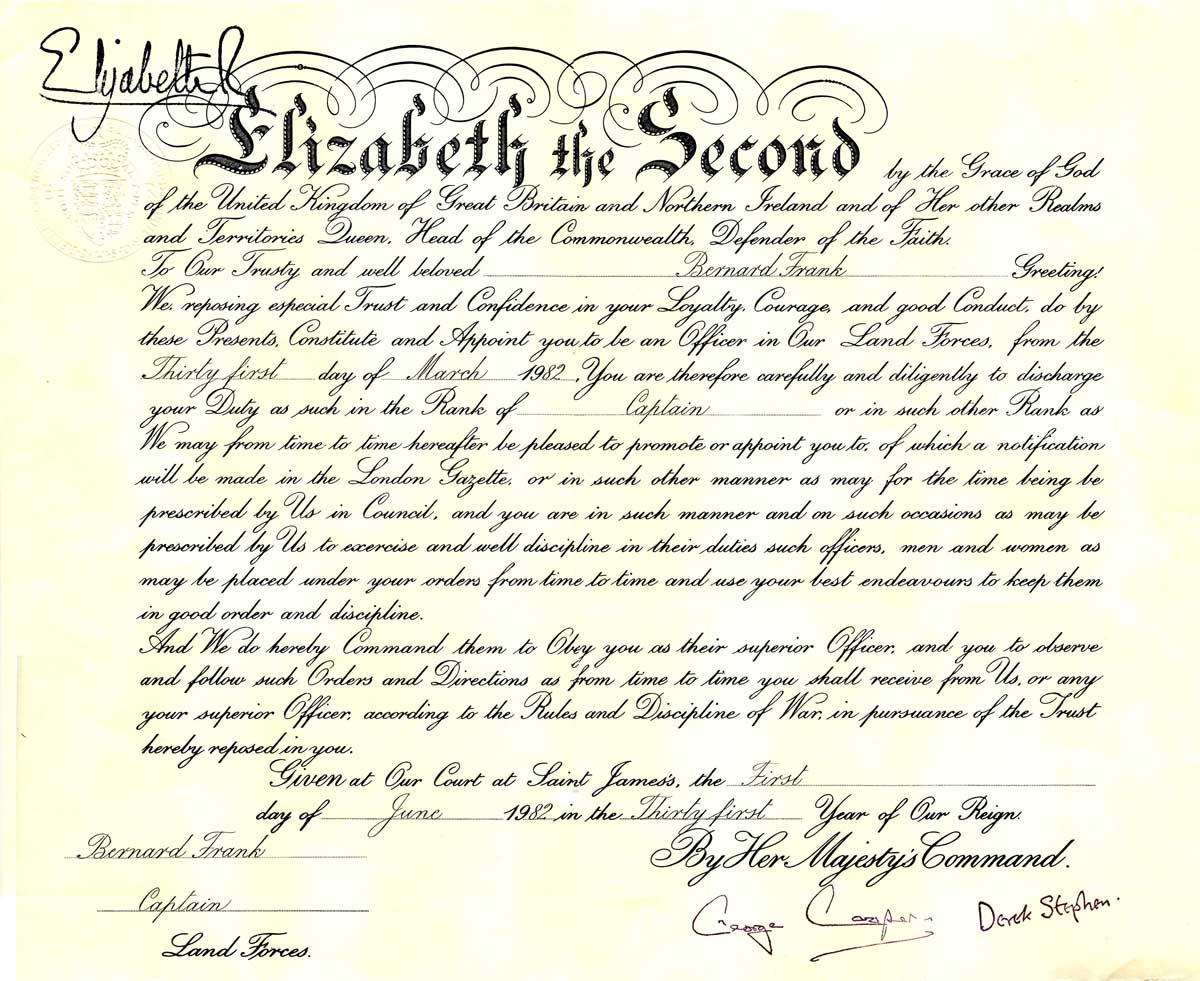 Elizabeth R
Elizabeth the Second by the Grace of God
of the United Kingdom of Great Britain and Northern Ireland and of Her other Realms
and Territories Queen, Head of the Commonwealth, Defender of the Faith.
To Our Trusty and well beloved Bernard Frank Greeting!
We, reposing especial Trust and Confidence in your Loyalty, Courage, and good Conduct, do by
these Presents, Constitute and Appoint you to be an Officer in Our Land Forces, from the
Thirty first day of March 1982. You are therefore carefully and diligently to discharge
your Duty as such in the Rank of Captain or in such other Rank as
We may from time to time hereafter be pleased to promote or appoint you to, of which a notification
will be made in the London Gazette, or in such other manner as may for the time being be
prescribed by Us in Council, and you are in such manner and on such occasions as may be
prescribed by Us to exercise and well discipline in their duties such officers, men and women as
may be placed under your orders from time to time and use your best endeavours to keep them
in good order and discipline.
And We do hereby Command them to Obey you as their superior Officer, and you to observe
and follow such Orders and Directions as from time to time you shall receive from Us, or any
your superior Officer, according to the Rules and Discipline of War, in pursuance of the Trust
hereby reposed in you.
Given at Our Court at Saint James's, the First
day of June 1982 in the Thirty first Year of Our Reign.
By Her Majesty's Command.
Bernard Frank
Captain
Land Forces.
George Derek Stephen.